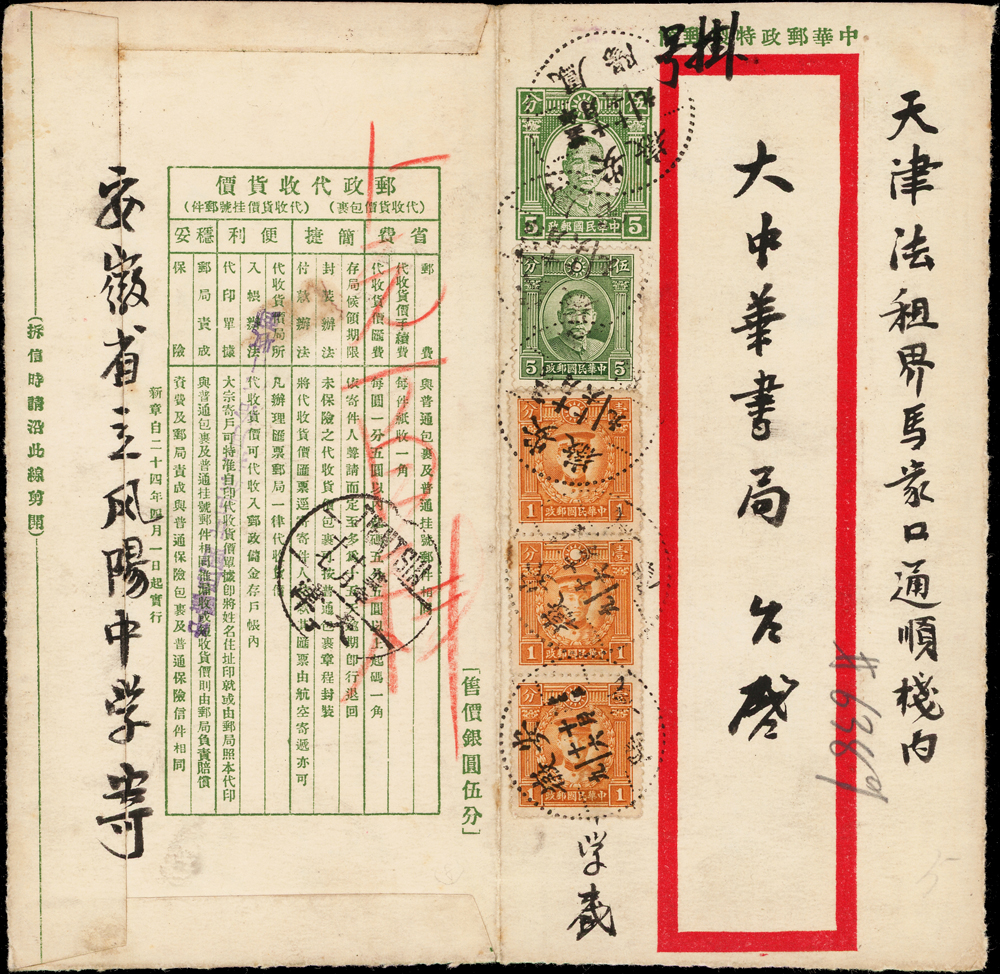 中華郵政特製郵簡
掛號
天津法租界馬家口通順棧内
大中華書局 台啓
#6289
伍分
5 中華民國郵政 5
伍分
5 中華民國郵政 5
壹分
1 中華民國郵政 1
壹分
1 中華民國郵政 1
壹分
1 中華民國郵政 1
安徽
鳳陽
「售價銀圓伍分」
郵政代收貨價
(代收貨價包裹) (代收貨價挂號郵件)
省費 簡捷 便利 穩妥
郵費 與普通包裹及普通挂號郵件相同
代收貨價手續費 每件紙收一角
代收貨價匯費 每圓一分五圓以
存局候領期限 依寄件人聲請而定至多
封裝辦法 未保險之代收貨價包裹按普通包裹章程封裝
付款辦法 將代收貨價匯票逕寄寄件人匯票由航空寄遞亦可
代收貨價局所 凡辦理匯票郵局一律代收貨價
入帳辦法 代收貨價可代收入郵政儲金存戶帳內
代印單據 大宗寄戶可特准自印代收貨價單據即將姓名住址印就或由郵局照本代印
郵局責成 與普通包裹及普通挂號郵件相同收貨價則由郵局負責賠償
保險 資費及郵局責成與普通保險包裹及普通保險信件相同
新章自二十四年四月一日起實行
TIENTSIN
安徽省立鳳陽中学寄
(拆信時請沿此線剪開)